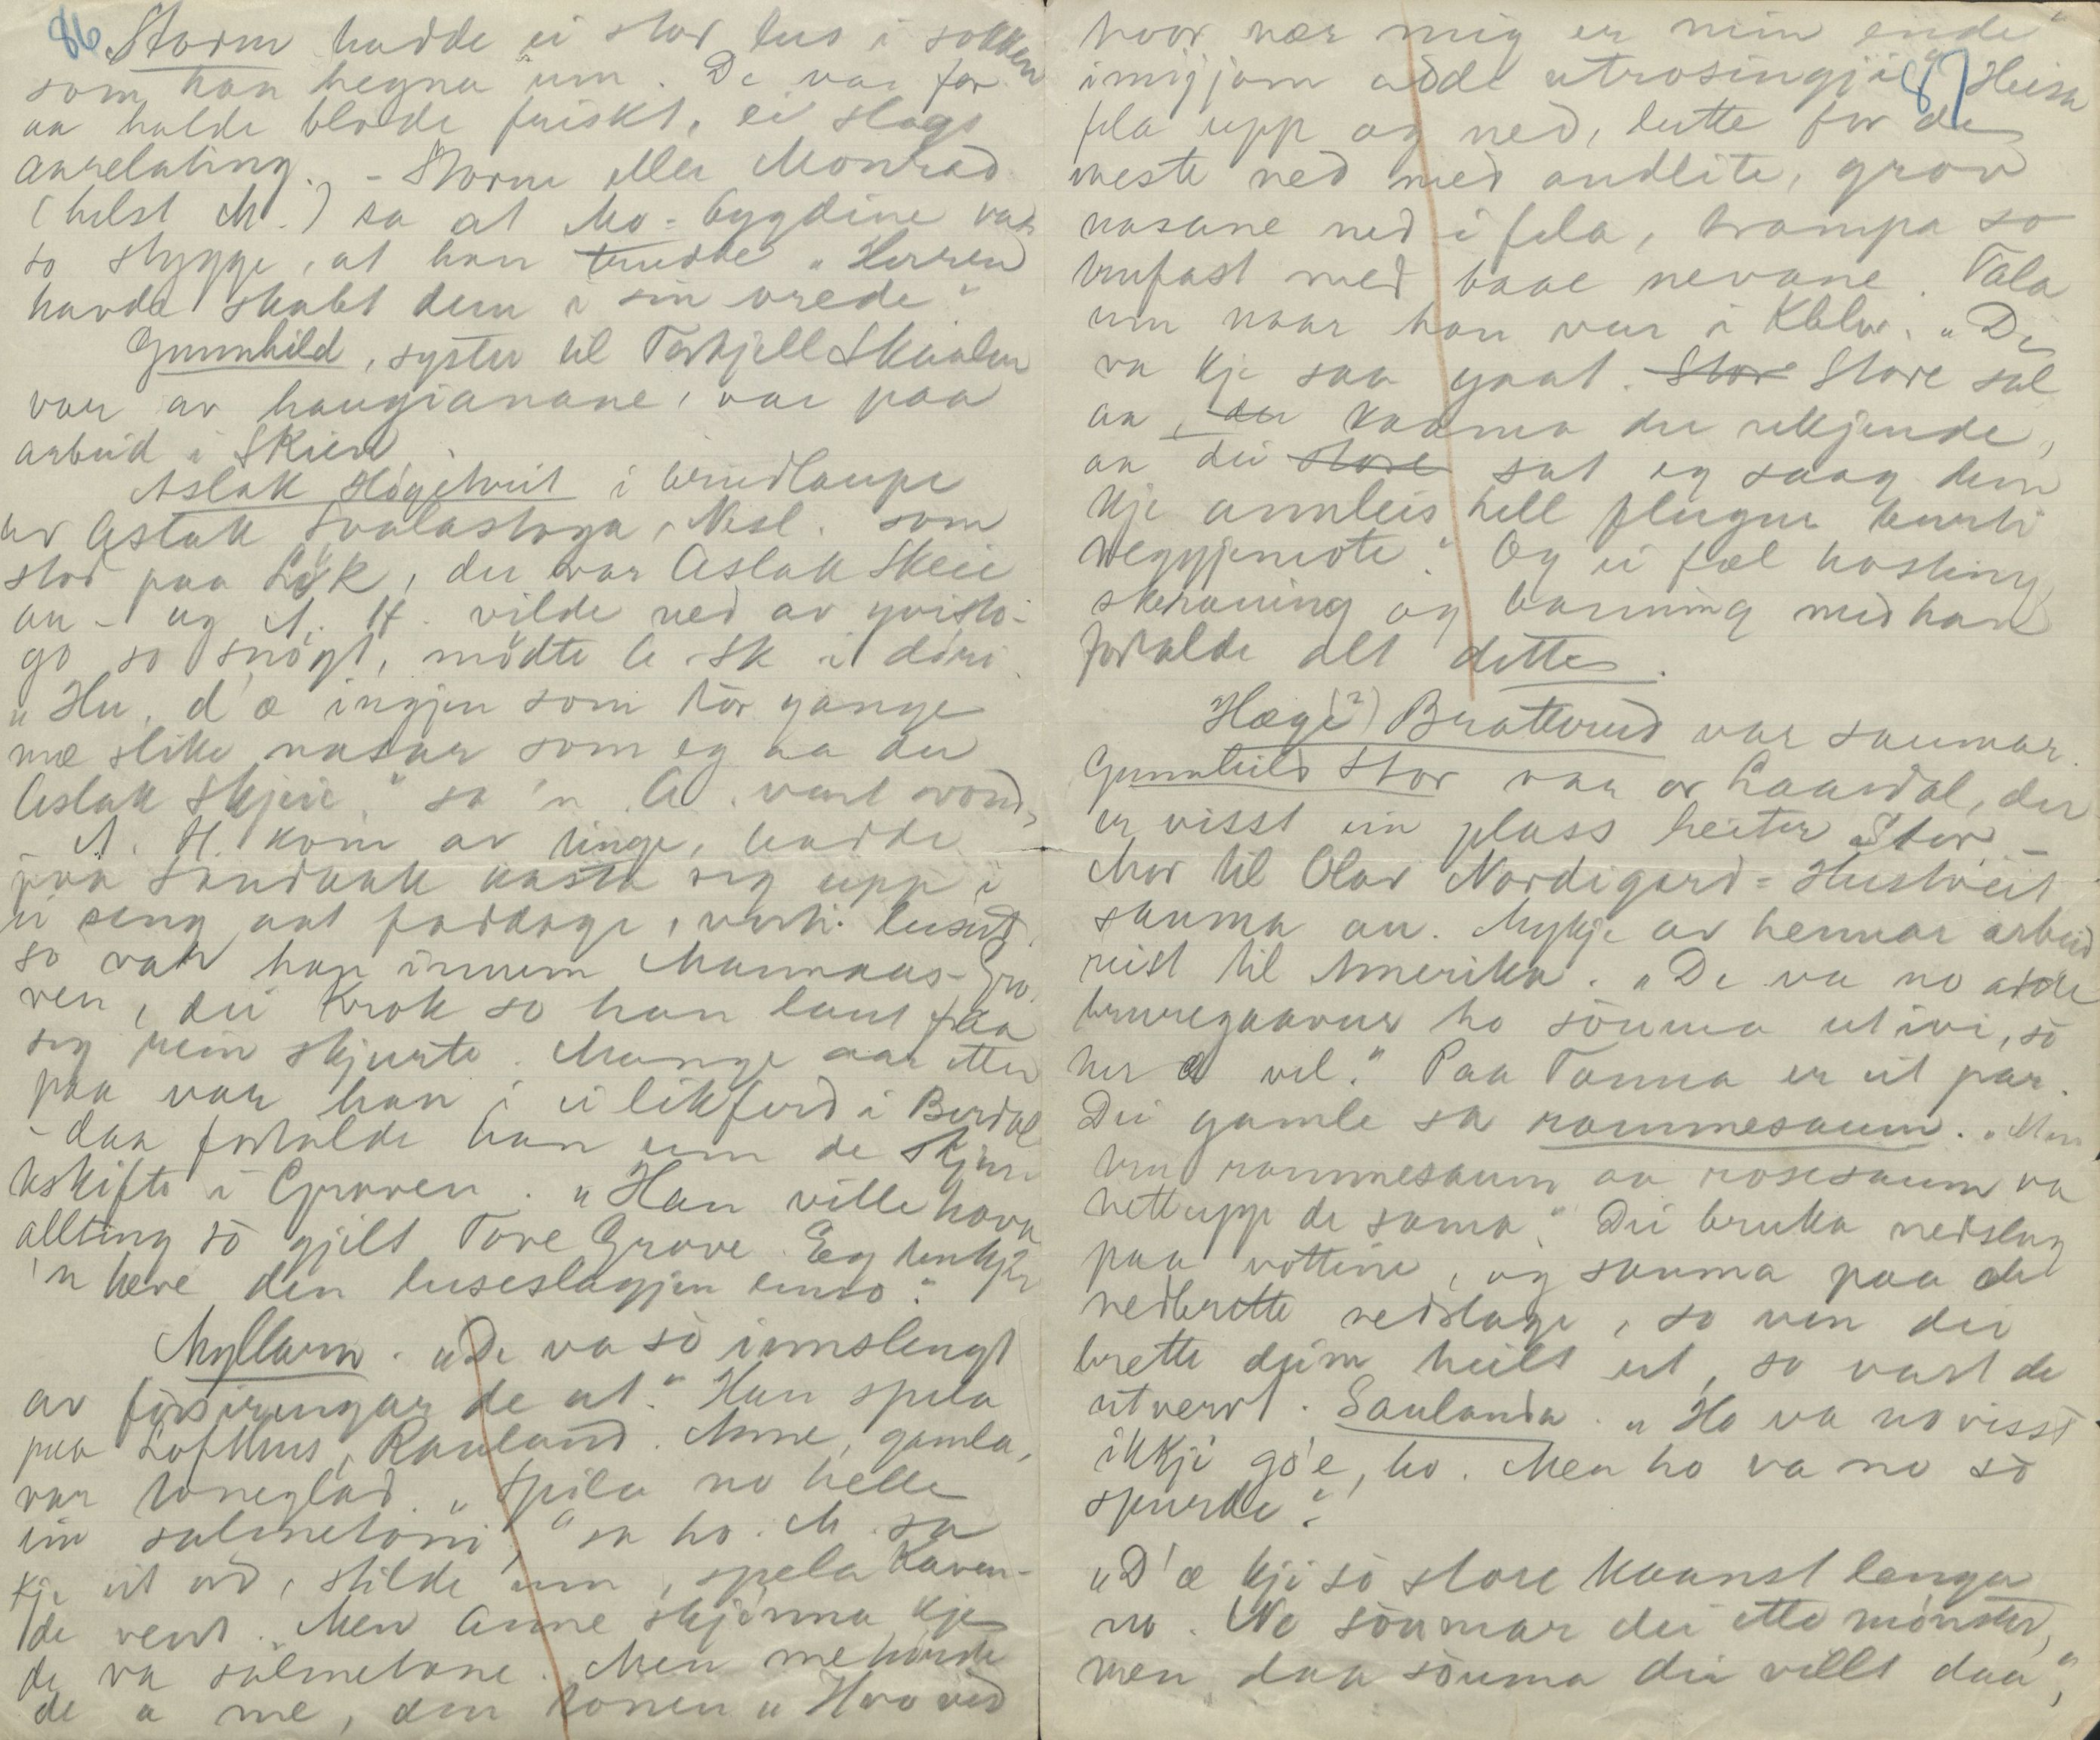 86 Storm hadde ei stor lus i sokken
som han hegna um. De var for
aa halde blode friskt, ei slags
aarelating. - Storm eller Monrad
(helst M.) sa at Mo-bygdine var
so stygge, at han trudde "Herren
havde skabt dem i sin vrede".
Gunnhild, syster til Torkjell Skaalen
var av haugianane, var paa
arbeid i Skien.
Aslak Høgetveit i brudlaupe
av Aslak Svalastoga, Nesl. som
stod paa Løk, der var Aslak Skeie
au - og A. H. vilde ned av
go so snögt, mödte A. Sk i döri.
"Hu, d'æ ingjen som tör gange
mæ slike nasar som eg aa du
Aslak Skjeie," sa 'n. A. vart vond,
A. H. kom av tinge, hadde
paa Sandaak kasta seg upp i
ei seng aat fordage, vart luset.
so var han innum Mannaas-Gro
ven, dei krok so han laut faa
seg rein skjurte. Mange aar etter
paa var han i ei likferd i Berdal
- daa fortalde han um de skjur
teskifte i Groven. "Han ville hava
allting so gjilt Tove Grove. Eg tenkjer
'n heve den luseslagjen enno."
Myllarn. "De va sò innslengt
av forsiringar de at." Han spela
paa Lofthus, Rauland. Anne, gamla,
var toneglad. "Spila no helle
ein salmetoni," sa ho. M. sa
kje eit ord, stilde um, spela
de vent. Men Anne skjönna kje
de va salmetone. Men me höirde
de a me, den tonen "Hvo ved
hvor nær mig er min ende"
imigjom adde utrosingji" 87 Heisa
fela upp og ned, lutte for de
meste ned med andlite, grov
nasane ned i fela, trampa so
trufast med baae nevane. Tala
um naar han var i Kbhv. "De
va kje saa gaat. Store Store sal
aa, der kaama dei rekjende,
aa dei store sat eg saag dem
kje annleis hell flugur burti
veggjemote." Og ei fæl hosting
skraning og banning med han
fortalde alt dette.
Hæge(?) Bratterud var saumar.
Gunnhild Stor var or Laardal, der
er visst ein plass heiter Stor
Mor til Olav Nordigard-Hustveit
sauma au. Mykje av hennar arbeid
reist til Amerika. "De va no adde
bruregaavur ho söuma ut ivi, sò
her æ vel." Paa Tanna er eit par.
Dei gamle sa rammesaum. "Men
rammesaum aa rosesaum va
nettupp de sama." Dei bruka nedslag
paa vottine, og sauma paa det
nedbrette nedslage, so ven dei
brette deim heilt ut, so vart de
utvervt. Saulanda. "Ho va no visst
ikkji go'e, ho. Men ho va no sò
spurde".
"D'æ kji sò store kaanst lenger
no. No söumar dei ette mönster,
men daa söuma dei villt daa",